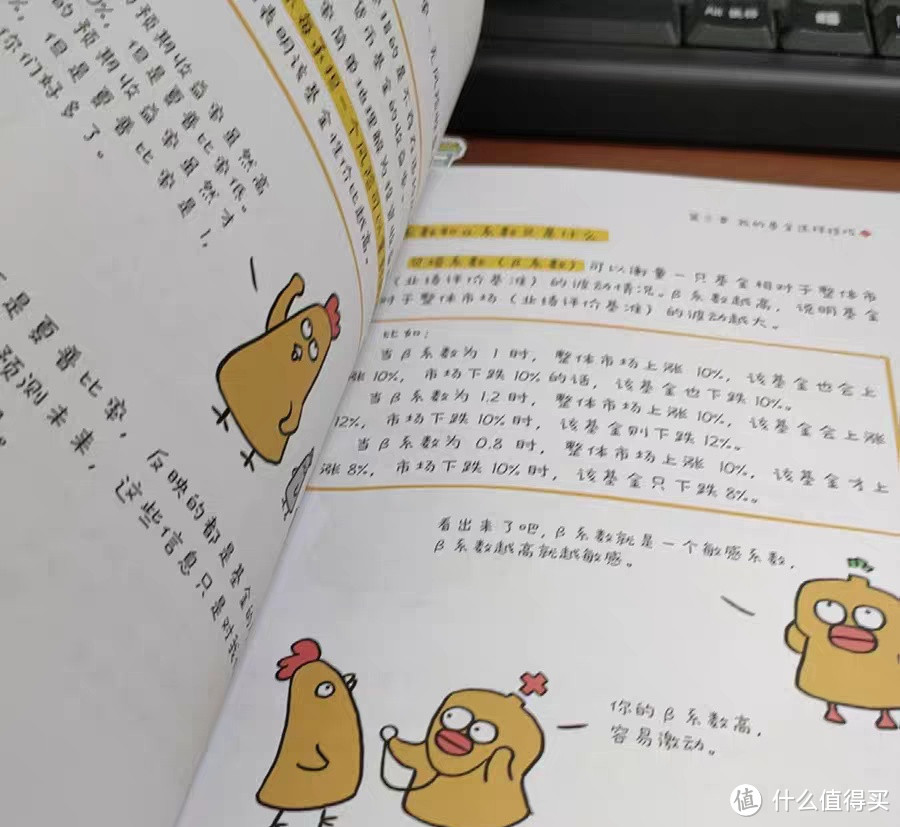 预期收益率虽然高
0%，但是夏普比率低。
的预期收益率虽然才
%，但是夏普比率是1，
你们好多了。
简单地理解为
每承担一个风险可以
表明该基金性价比越高。
是夏普比率，反映的都是基金的
预测未来，这些信息只是对
我的基金选择技巧
系数和α系数又是什么
系数（β系数）可以衡量一只基金相对于整体市
（业绩评价基准）的波动情况。β系数越高，说明基金
对于整体市场（业绩评价基准）的波动越大。
比如：
当β系数为 1 时，整体市场上涨 10%，该基金也会上
涨 10%，市场下跌 10% 的话，该基金也下跌 10%。
当β系数为 1.2 时，整体市场上涨 10%，该基金会上涨
12%，市场下跌 10% 时，该基金则下跌 12%。
当β系数为 0.8 时，整体市场上涨 10%，该基金才上
涨 8%，市场下跌 10% 时，该基金只下跌 8%。
看出来了吧，β系数就是一个敏感系数，
β系数越高就越敏感。
你的β系数高，
容易激动。
Alt
值 什么值得买